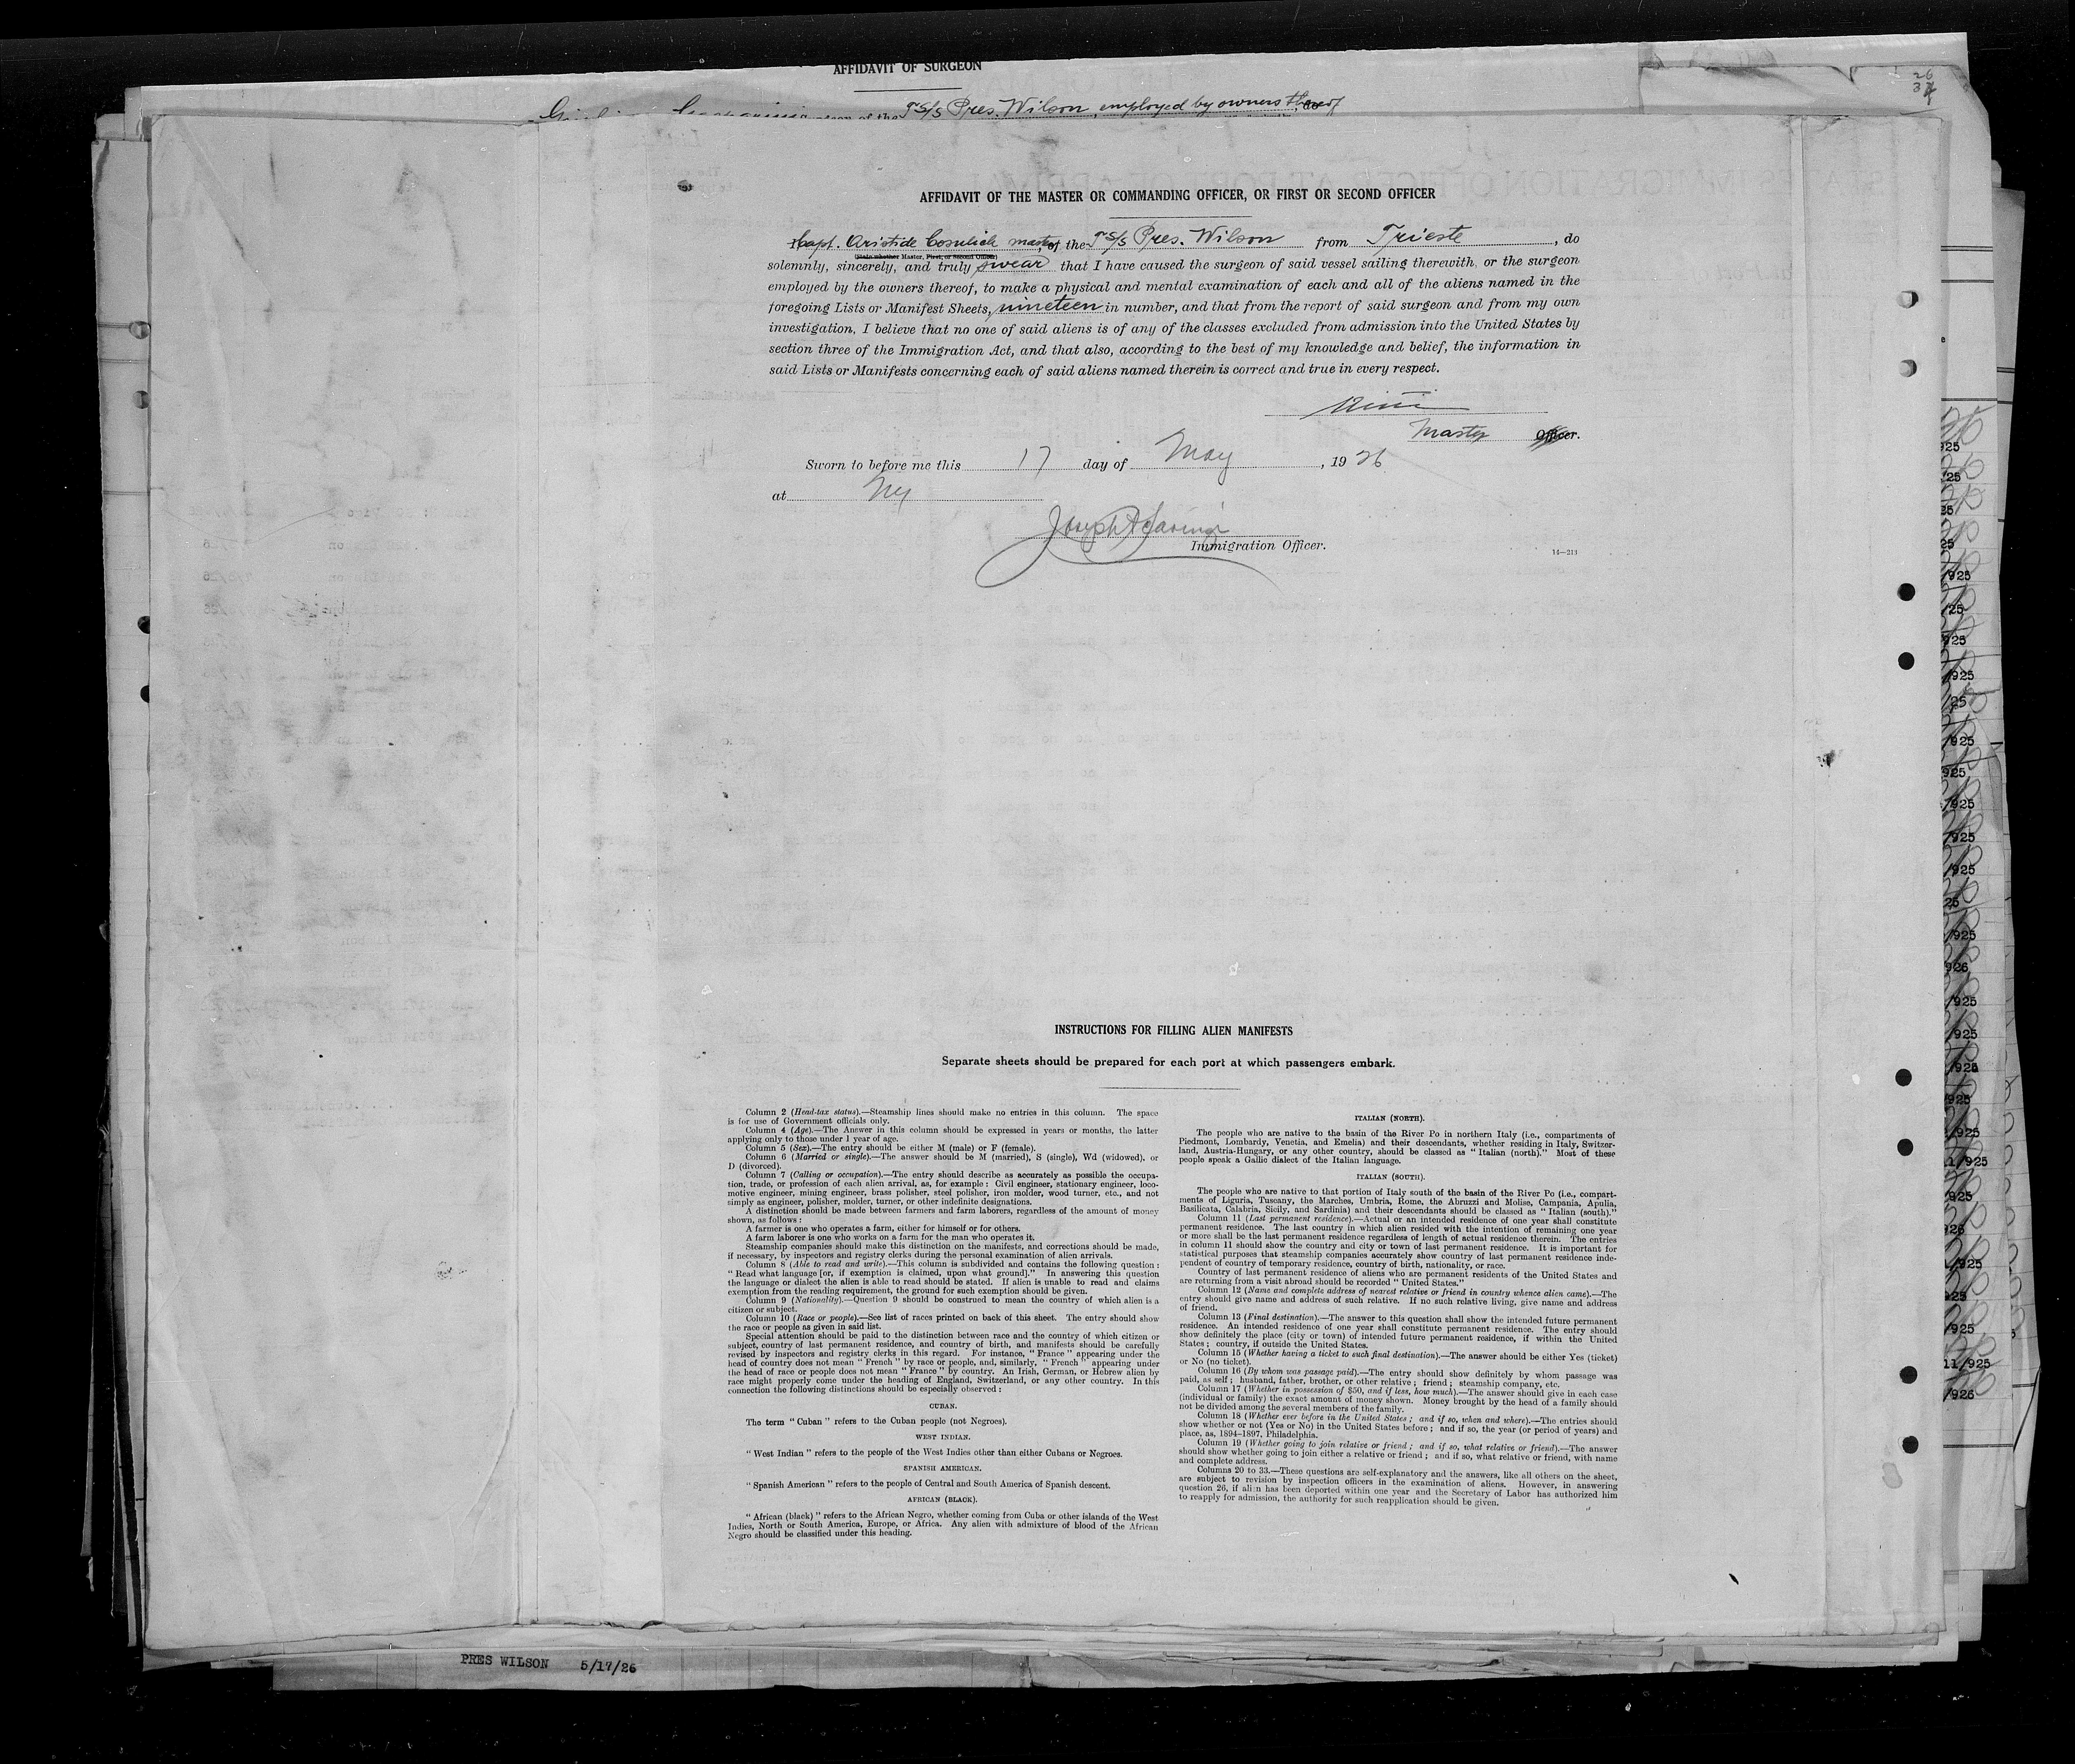 AFFIDAVIT OF SURGEON
T S/S Pres. Wilson, employed by owners thereof
26
AFFIDAVIT OF THE MASTER OR COMMANDING OFFICER, OR FIRST OR SECOND OFFICER
I Capt. Aristide Cosulich master, of the T S/S Pres. Wilson from Trieste, do
(State whether Master, First, or Second Officer)
solemnly, sincerely, and truly swear that I have caused the surgeon of said vessel sailing therewith, or the surgeon
employed by the owners thereof, to make a physical and mental examination of each and all of the aliens named in the
foregoing Lists or Manifest Sheets, nineteen in number, and that from the report of said surgeon and from my own
investigation, I believe that no one of said aliens is of any of the classes excluded from admission into the United States by
section three of the Immigration Act, and that also, according to the best of my knowledge and belief, the information in
said Lists or Manifests concerning each of said aliens named therein is correct and true in every respect.
Master Officer.
Sworn to before me this 17 day of May, 1926
at NY
Immigration Officer.
14—213
INSTRUCTIONS FOR FILLING ALIEN MANIFESTS
Separate sheets should be prepared for each port at which passengers embark.
Column 2 (Head-tax status).—Steamship lines should make no entries in this column. The space
is for use of Government officials only.
Column 4 (Age).—The Answer in this column should be expressed in years or months, the latter
applying only to those under 1 year of age.
Column 5 (Sex).—The entry should be either M (male) or F (female).
Column 6 (Married or single).—The answer should be M (married), S (single), Wd (widowed), or
D (divorced).
Column 7 (Calling or occupation).—The entry should describe as accurately as possible the occupa-
tion, trade, or profession of each alien arrival, as, for example: Civil engineer, stationary engineer, loco-
motive engineer, mining engineer, brass polisher, steel polisher, iron molder, wood turner, etc., and not
simply as engineer, polisher, molder, turner, or other indefinite designations.
A distinction should be made between farmers and farm laborers, regardless of the amount of money
shown, as follows:
A farmer is one who operates a farm, either for himself or for others.
A farm laborer is one who works on a farm for the man who operates it.
Steamship companies should make this distinction on the manifests, and corrections should be made,
if necessary, by inspectors and registry clerks during the personal examination of alien arrivals.
Column 8 (Able to read and write).—This column is subdivided and contains the following question:
"Read what language [or, if exemption is claimed, upon what ground]." In answering this question
the language or dialect the alien is able to read should be stated. If alien is unable to read and claims
exemption from the reading requirement, the ground for such exemption should be given.
Column 9 (Nationality).—Question 9 should be construed to mean the country of which alien is a
citizen or subject.
Column 10 (Race or people).—See list of races printed on back of this sheet. The entry should show
the race or people as given in said list.
Special attention should be paid to the distinction between race and the country of which citizen or
subject, country of last permanent residence, and country of birth, and manifests should be carefully
revised by inspectors and registry clerks in this regard. For instance, "France" appearing under the
head of country does not mean "French" by race or people, and, similarly, "French" appearing under
the head of race or people does not mean "France" by country. An Irish, German, or Hebrew alien by
race might properly come under the heading of England, Switzerland, or any other country. In this
connection the following distinctions should be especially observed:
CUBAN.
The term "Cuban" refers to the Cuban people (not Negroes).
WEST INDIAN.
"West Indian" refers to the people of the West Indies other than either Cubans or Negroes.
SPANISH AMERICAN.
"Spanish American" refers to the people of Central and South America of Spanish descent.
AFRICAN (BLACK).
"African (black)" refers to the African Negro, whether coming from Cuba or other islands of the West
Indies, North or South America, Europe, or Africa. Any alien with admixture of blood of the African
Negro should be classified under this heading.
ITALIAN (NORTH).
The people who are native to the basin of the River Po in northern Italy (i.e., compartments of
Piedmont, Lombardy, Venetia, and Emelia) and their descendants, whether residing in Italy, Switzer-
land, Austria-Hungary, or any other country, should be classed as "Italian (north)." Most of these
people speak a Gallic dialect of the Italian language.
ITALIAN (SOUTH).
The people who are native to that portion of Italy south of the basin of the River Po (i.e., compart-
ments of Liguria, Tuscany, the Marches, Umbria, Rome, the Abruzzi and Molise, Campania, Apulia,
Basilicata, Calabria, Sicily, and Sardinia) and their descendants should be classed as "Italian (south)."
Column 11 (Last permanent residence).—Actual or an intended residence of one year shall constitute
permanent residence. The last country in which alien resided with the intention of remaining one year
or more shall be the last permanent residence regardless of length of actual residence therein. The entries
in column 11 should show the country and city or town of last permanent residence. It is important for
statistical purposes that steamship companies accurately show country of last permanent residence inde-
pendent of country of temporary residence, country of birth, nationality, or race.
Country of last permanent residence of aliens who are permanent residents of the United States and
are returning from a visit abroad should be recorded "United States."
Column 12 (Name and complete address of nearest relative or friend in country whence alien came).—The
entry should give name and address of such relative. If no such relative living, give name and address
of friend.
Column 13 (Final destination).—The answer to this question shall show the intended future permanent
residence. An intended residence of one year shall constitute permanent residence. The entry should
show definitely the place (city or town) of intended future permanent residence, if within the United
States; country, if outside the United States.
Column 15 (Whether having a ticket to such final destination).—The answer should be either Yes (ticket)
or No (no ticket).
Column 16 (By whom was passage paid).—The entry should show definitely by whom passage was
paid, as self; husband, father, brother, or other relative; friend; steamship company, etc.
Column 17 (Whether in possession of $50, and if less, how much).—The answer should give in each case
(individual or family) the exact amount of money shown. Money brought by the head of a family should
not be divided among the several members of the family.
Column 18 (Whether ever before in the United States; and if so, when and where).—The entries should
show whether or not (Yes or No) in the United States before; and if so, the year (or period of years) and
place, as, 1894-1897, Philadelphia.
Column 19 (Whether going to join relative or friend; and if so, what relative or friend).—The answer
should show whether going to join either a relative or friend; and if so, what relative or friend, with name
and complete address.
Columns 20 to 33.—These questions are self-explanatory and the answers, like all others on the sheet,
are subject to revision by inspection officers in the examination of aliens. However, in answering
question 26, if alien has been deported within one year and the Secretary of Labor has authorized him
to reapply for admission, the authority for such reapplication should be given.
PRES WILSON 5/17/26